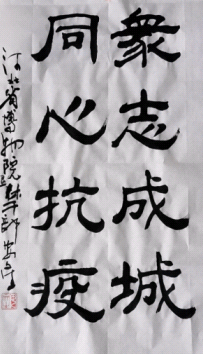 衆志成城
同心抗疫
河北省博物院